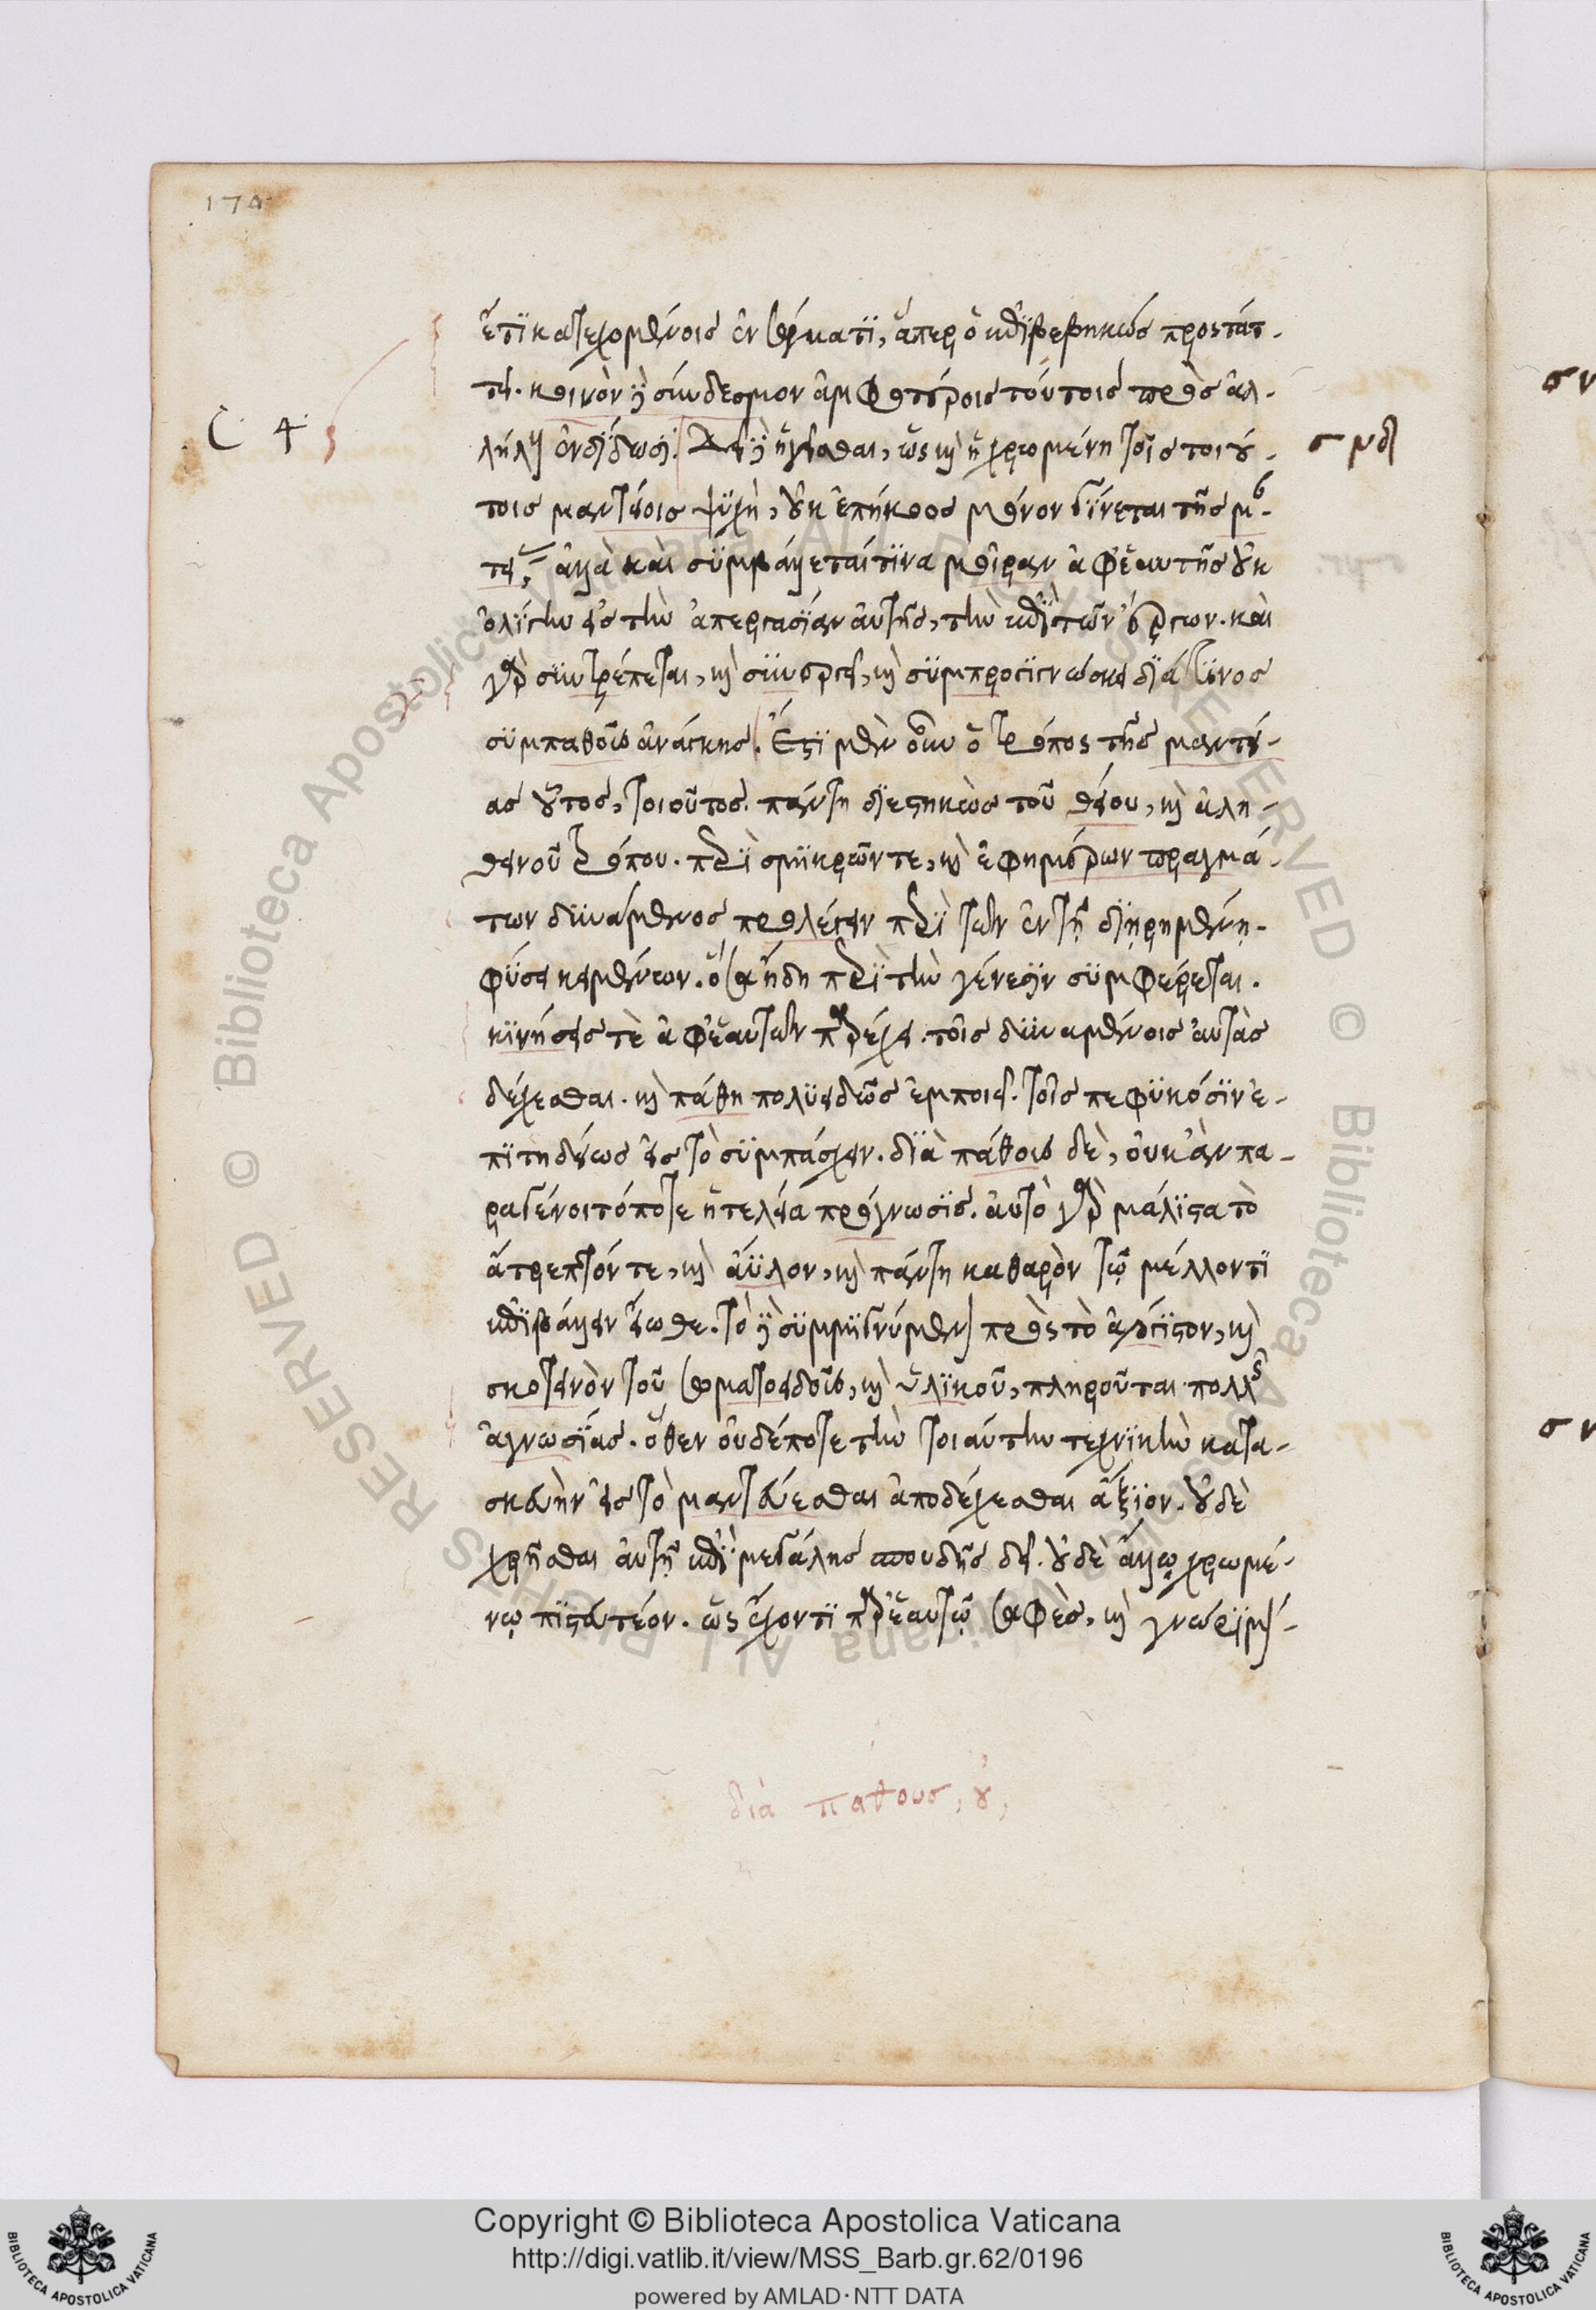 174
ἔτι κατεχομένοις ἐν σώματι, ἅπερ ὁ ὑποβεβηκὼς προστάτ-
C 4
τει. κοινὸν δὲ σύνδεσμον ἀμφοτέροις τούτοις πρὸς ἀλ-
ληλ ἐνδίδωσι. δεῖ δὲ ἡγεῖσθαι, ὡς καὶ ἡ χρωμένη τοῖς τοιού-
σμδ
τοις μαντείοις ψυχὴ, οὐκ ἐπήκοος μόνον γίνεται τῆς μ-
τει, ἀλλὰ καὶ συμβάλλεταί τινα μοῖραν ἀφ' ἑαυτῆς οὐκ
ὀλίγην εἰς τὴν ἀπεργασίαν αὐτῆς, τὴν τῶν ἔργων. καὶ
γὰρ συντρέπεται, καὶ συνεργεῖ, καὶ συμπρογιγνώσκει διά τινος
συμπαθοῦς ἀνάγκης. Ἔστι μὲν οὖν ὁ τρόπος τῆς μαντεί-
ας οὗτος, τοιοῦτος. πάντη διεστηκὼς τοῦ θείου, καὶ ἀλη-
θινοῦ τρόπου. περὶ σμικρῶν τε, καὶ ἐφημέρων πραγμά-
των δυνάμενος προλέγειν περὶ τῶν ἐν τῇ διῃρημένῃ
φύσει κειμένων. ὅσα ἤδη περὶ τὴν γένεσιν συμφέρεται.
κινήσεις τὲ ἀφ' ἑαυτῶν παρέχει. τοῖς δυναμένοις αὐτὰς
δέχεσθαι. καὶ πάθη πολυειδῶς ἐμποιεῖ. τοῖς πεφυκόσιν ἐ-
πιτηδείως εἰς τὸ συμπάσχειν. διὰ πάθους δὲ, οὐκ ἂν πα-
ραγένοιτό ποτε ἡ τελεία πρόγνωσις. αὐτὸ γὰρ μάλιστα τὸ
ἄτρεπτόν τε, καὶ ἄϋλον, καὶ πάντη καθαρὸν τῷ μέλλοντι
ἐπιβάλλειν εἴωθε. τὸ δὲ συμμιγνύμενον πρὸς τὸ ἀλόγιστον, καὶ
σκοτεινὸν τοῦ σωματοειδοῦς, καὶ ὑλικοῦ, πληροῦται πολλῆς
ἀγνωσίας. ὅθεν οὐδέποτε τὴν τοιαύτην τεχνικὴν κατα-
σκευὴν εἰς τὸ μαντεύεσθαι ἀποδέχεσθαι ἄξιον. οὐδὲ
χρῆσθαι αὐτῇ μετὰ μεγάλης σπουδῆς δεῖ. οὐδὲ ἄλλῳ χρωμέ-
νῳ πιστευτέον. ὡς ἔχοντι παρ' ἑαυτῷ σαφὲς, καὶ γνώριμόν
διὰ παθους, οὐ,
Copyright © Biblioteca Apostolica Vaticana
http://digi.vatlib.it/view/MSS_Barb.gr.62/0196
powered by AMLAD·NTT DATA